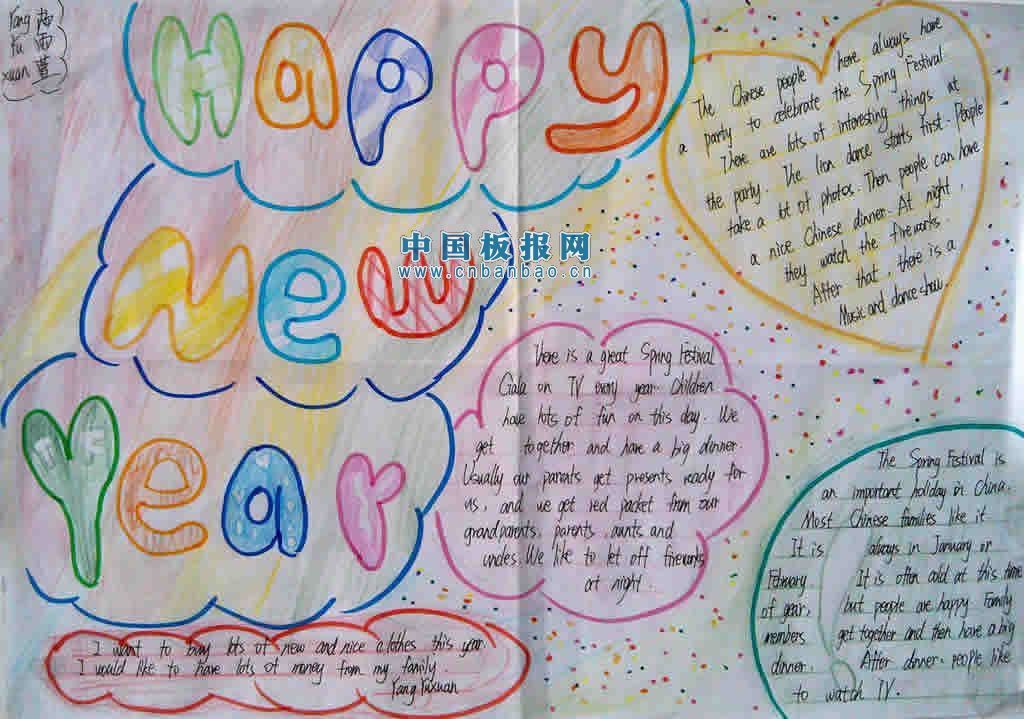 Yang
Yu 雨
xuan 萱
Happy
New
Year
中国板报网
www.cnbanbao.cn
The Chinese people here always have
a party to celebrate the Spring Festival
There are lots of interesting things at
the party. The lion dance starts first. People
take a lot of photos. Then people can have
a nice Chinese dinner. At night,
they watch the fireworks.
After that, there is a
Music and dance show.
There is a great Spring Festival
Gala on TV every year. Children
have lots of fun on this day. We
get together and have a big dinner.
Usually our parents get presents ready for
us, and we get red packet from our
grandparents, parents, aunts and
uncles. We like to let off fireworks
at night.
The Spring Festival is
an important holiday in China.
Most Chinese families like it
It is always in January or
February It is often cold at this time
of year, but people are happy. Family
members get together and then have a big
dinner. After dinner, people like
to watch TV.
I want to buy lots of new and nice clothes this year
I would like to have lots of money from my family.
Yang Yuxuan